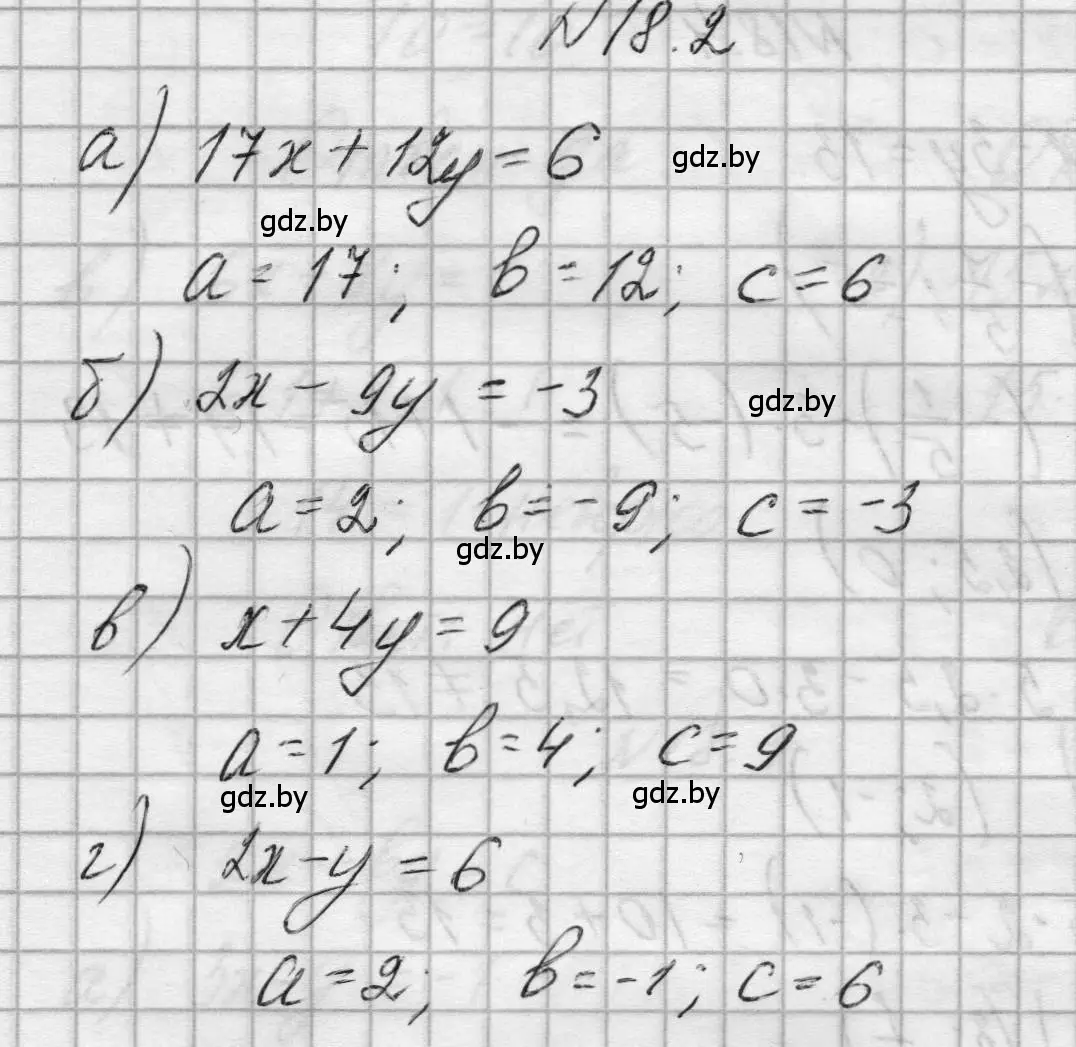 N18.2
а) 17x + 12y = 6
gdz.by
gdz.by
a = 17; b = 12; c = 6
б) 2x - 9y = -3
gdz.by
a = 2; b = -9; c = -3
gdz.by
в) x + 4y = 9
a = 1; b = 4; c = 9
gdz.by
gdz.by
г) 2x - y = 6
a = 2; b = -1; c = 6